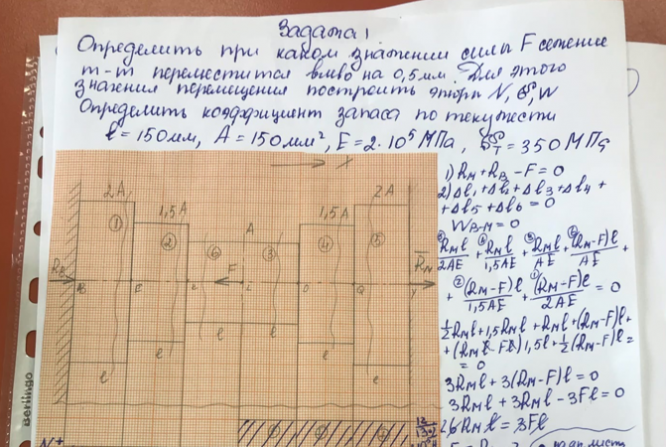 Задача 1
Определить при каком значении силы F сечение
m-m переместится влево на 0,5 мм. Для этого
значения перемещения построить эпюры N, σ, W
Определить коэффициент запаса по текучести
l = 150 мм, A = 150 мм², E = 2·10⁵ МПа, σт = 350 МПа
X
2A
1,5A
A
1,5A
2A
① ② ⑥ ③ ④ ⑤
F
l l l l
Berlingo
N
1) Rм + RB - F = 0
2) Δl1 + Δl2 + Δl3 + Δl4 +
+ Δl5 + Δl6 = 0
WB-M = 0
Rмl/2AE + Rмl/1,5AE + Rмl/AE + (Rм-F)l/AE +
+ (Rм-F)l/1,5AE + (Rм-F)l/2AE = 0
½Rмl + 1,5Rмl + Rмl + (Rм-F)l +
1,5l + ½(Rм-F)l =
= 0
3Rмl + 3(Rм-F)l = 0
3Rмl + 3Rмl - 3Fl = 0
6Rмl = 3Fl